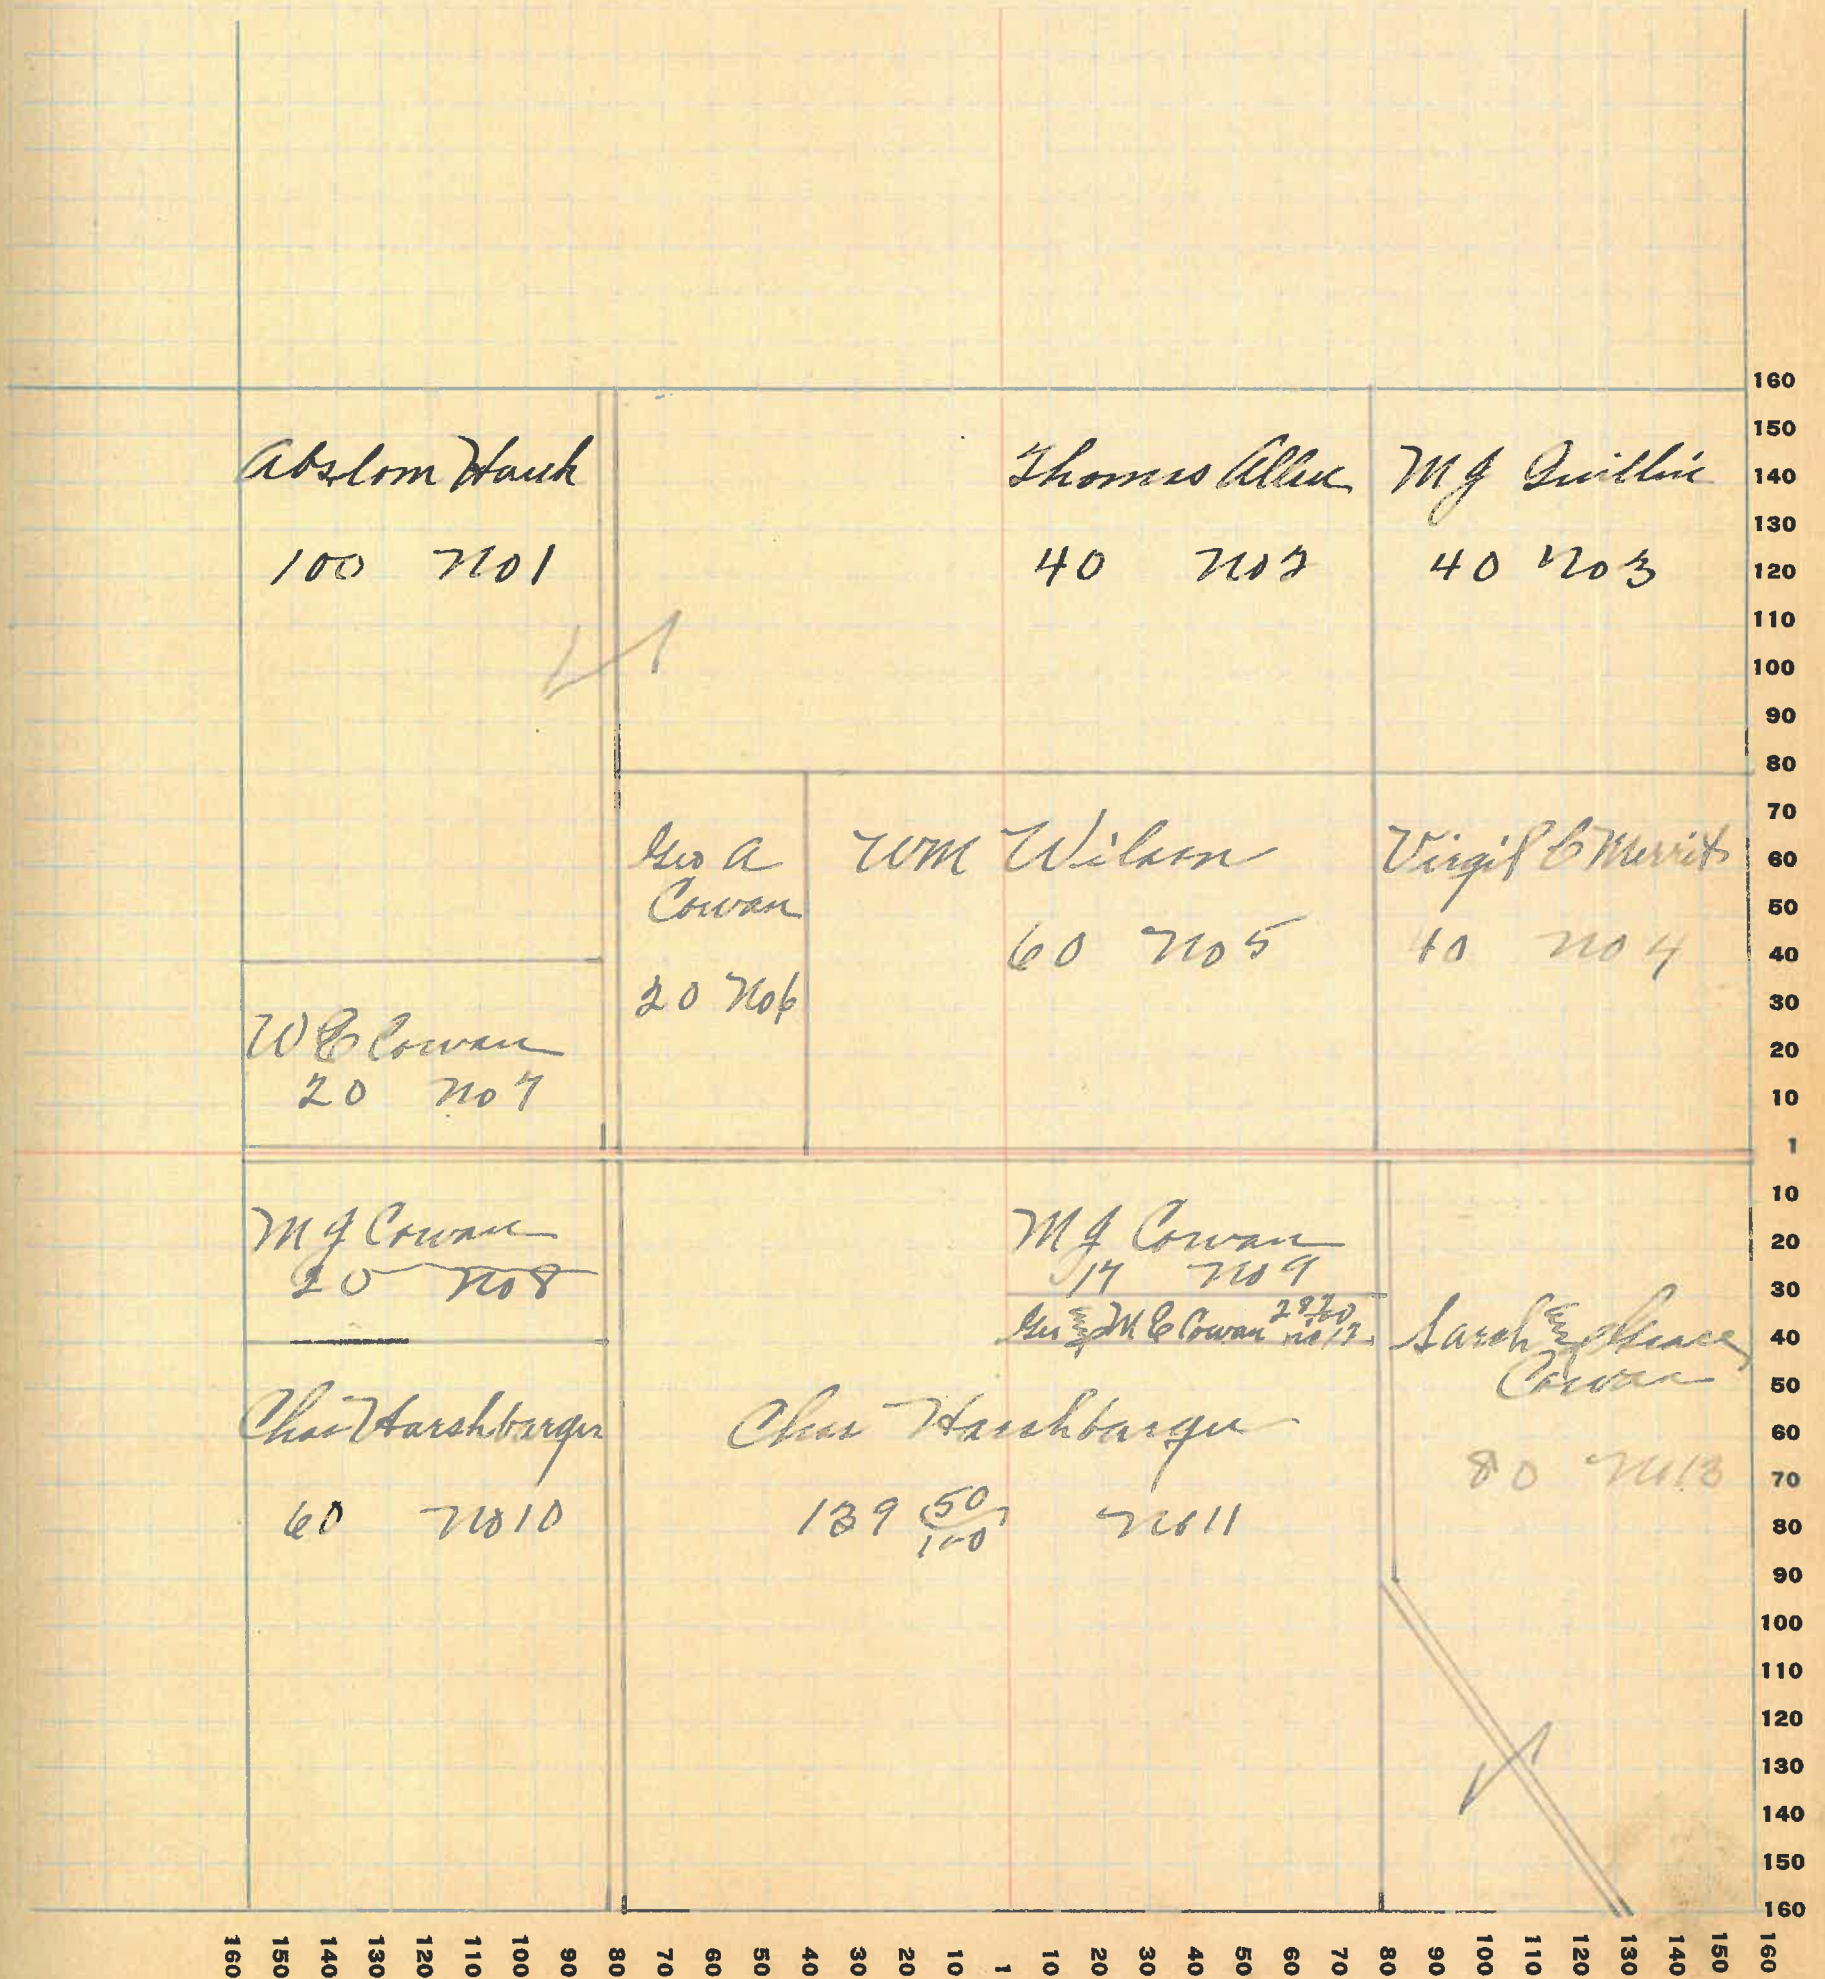 Abslom Hauk
100 No 1
Thomas Allen
40 No 2
M J Quillin
40 No 3
Geo A
Cowan
20 No 6
WM Wilson
60 No 5
Virgil C Merrit
40 No 4
W E Cowan
20 No 7
M J Cowan
20 No 8
M J Cowan
17 No 9
Geo & M E Cowan
No 12
Sarah & Grace
Cowan
80 No 13
Chas Harshbarger
60 No 10
Chas Harshbarger
139 50/100 No 11
160
150
140
130
120
110
100
90
80
70
60
50
40
30
20
10
1
10
20
30
40
50
60
70
80
90
100
110
120
130
140
150
160
160 150 140 130 120 110 100 90 80 70 60 50 40 30 20 10 1 10 20 30 40 50 60 70 80 90 100 110 120 130 140 150 160